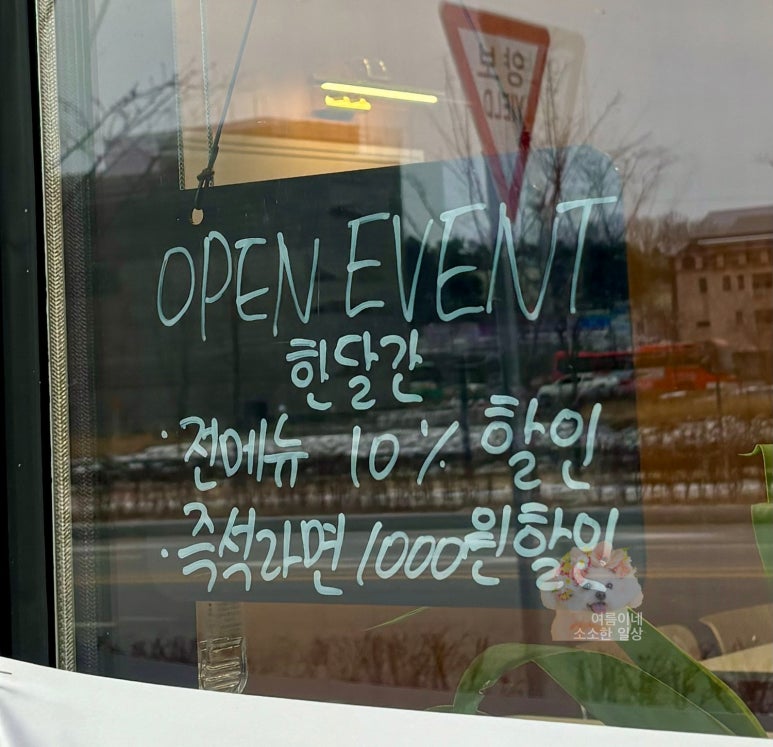 양보
YIELD
OPEN EVENT
한달간
· 전메뉴 10% 할인
· 즉석라면 1000원할인
여름이네
소소한 일상